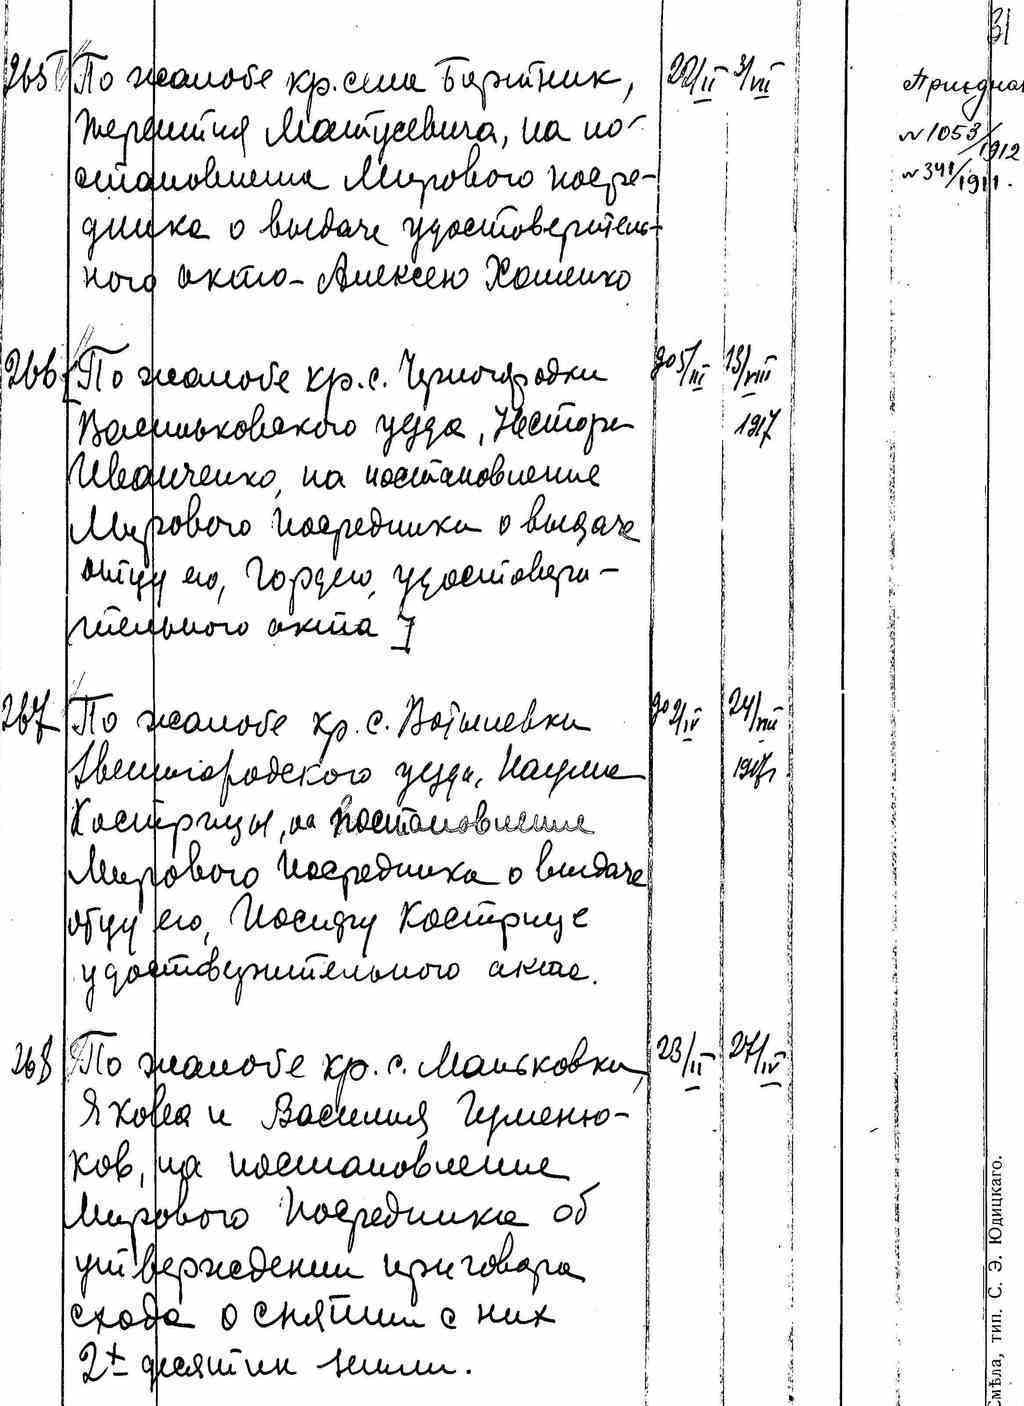 31
265 По жалобе кр. села Бортник, 22/II 3/VII
Терентия Матусевича, на по-
становление Мирового посре-
дника о выдаче удостоверитель-
ного акта - Алексею Хоменко
№ 1053/1912
№ 341/1911.
266 По жалобе кр. с. Черногородки до 5/III 13/VIII
Васильковского уезда, Нестора 1917
Иванченко, на постановление
Мирового Посредника о выдаче
отцу его, Гордею, удостовери-
тельного акта
267 По жалобе кр. с. Вотылевки до 2/IV 24/VIII
Звенигородского уезда, Наума 1917г
Кострицы, на постановление
Мирового Посредника о выдаче
отцу его, Иосифу Кострице
удостоверительного акта.
268 По жалобе кр. с. Маньковки, 23/II 27/IV
Якова и Василия Гуменю-
ков, на постановление
Мирового Посредника об
утверждении приговора
схода о снятии с них
2х десятин земли.
Смѣла, тип. С. Э. Юдицкаго.